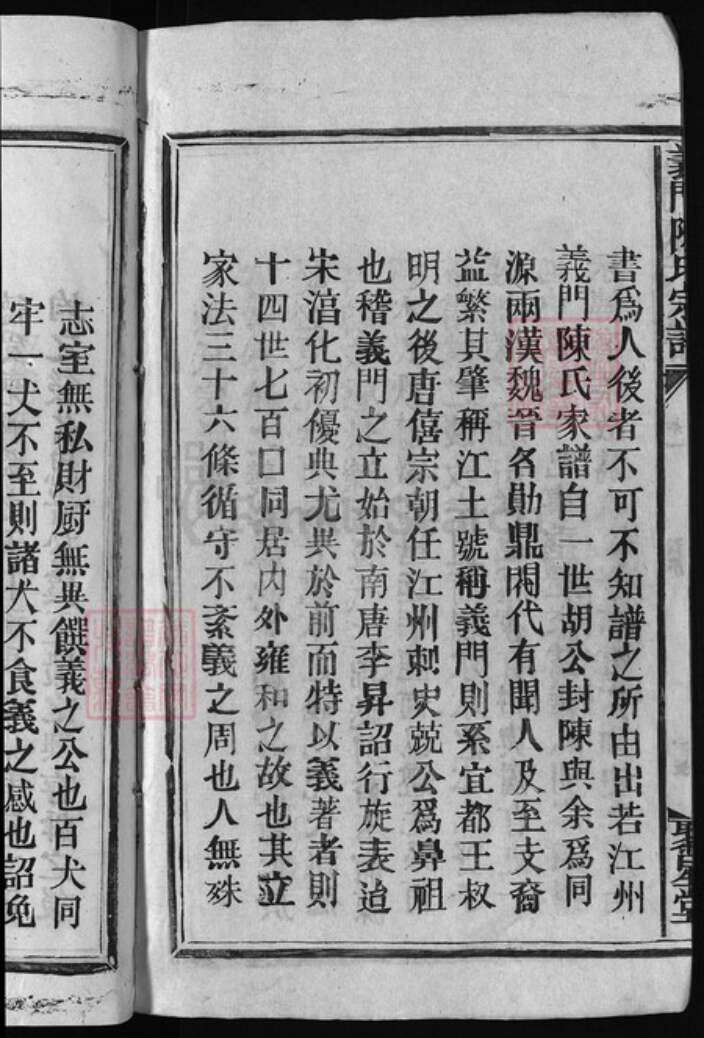 義門陳氏宗譜
聚星堂
書為人後者不可不知譜之所由出若江州
義門陳氏家譜自一世胡公封陳與余為同
源兩漢魏晉名勛鼎閥代有聞人及至支裔
益繁其肇稱江土號稱義門則系宜都王叔
明之後唐僖宗朝任江州刺史兢公為鼻祖
也稽義門之立始於南唐李昇詔行旌表迨
宋淳化初優典尤異於前而特以義著者則
十四世七百口同居內外雍和之故也其立
家法三十六條循守不紊義之周也人無殊
志室無私財厨無異饌義之公也百犬同
牢一犬不至則諸犬不食義之感也詔免